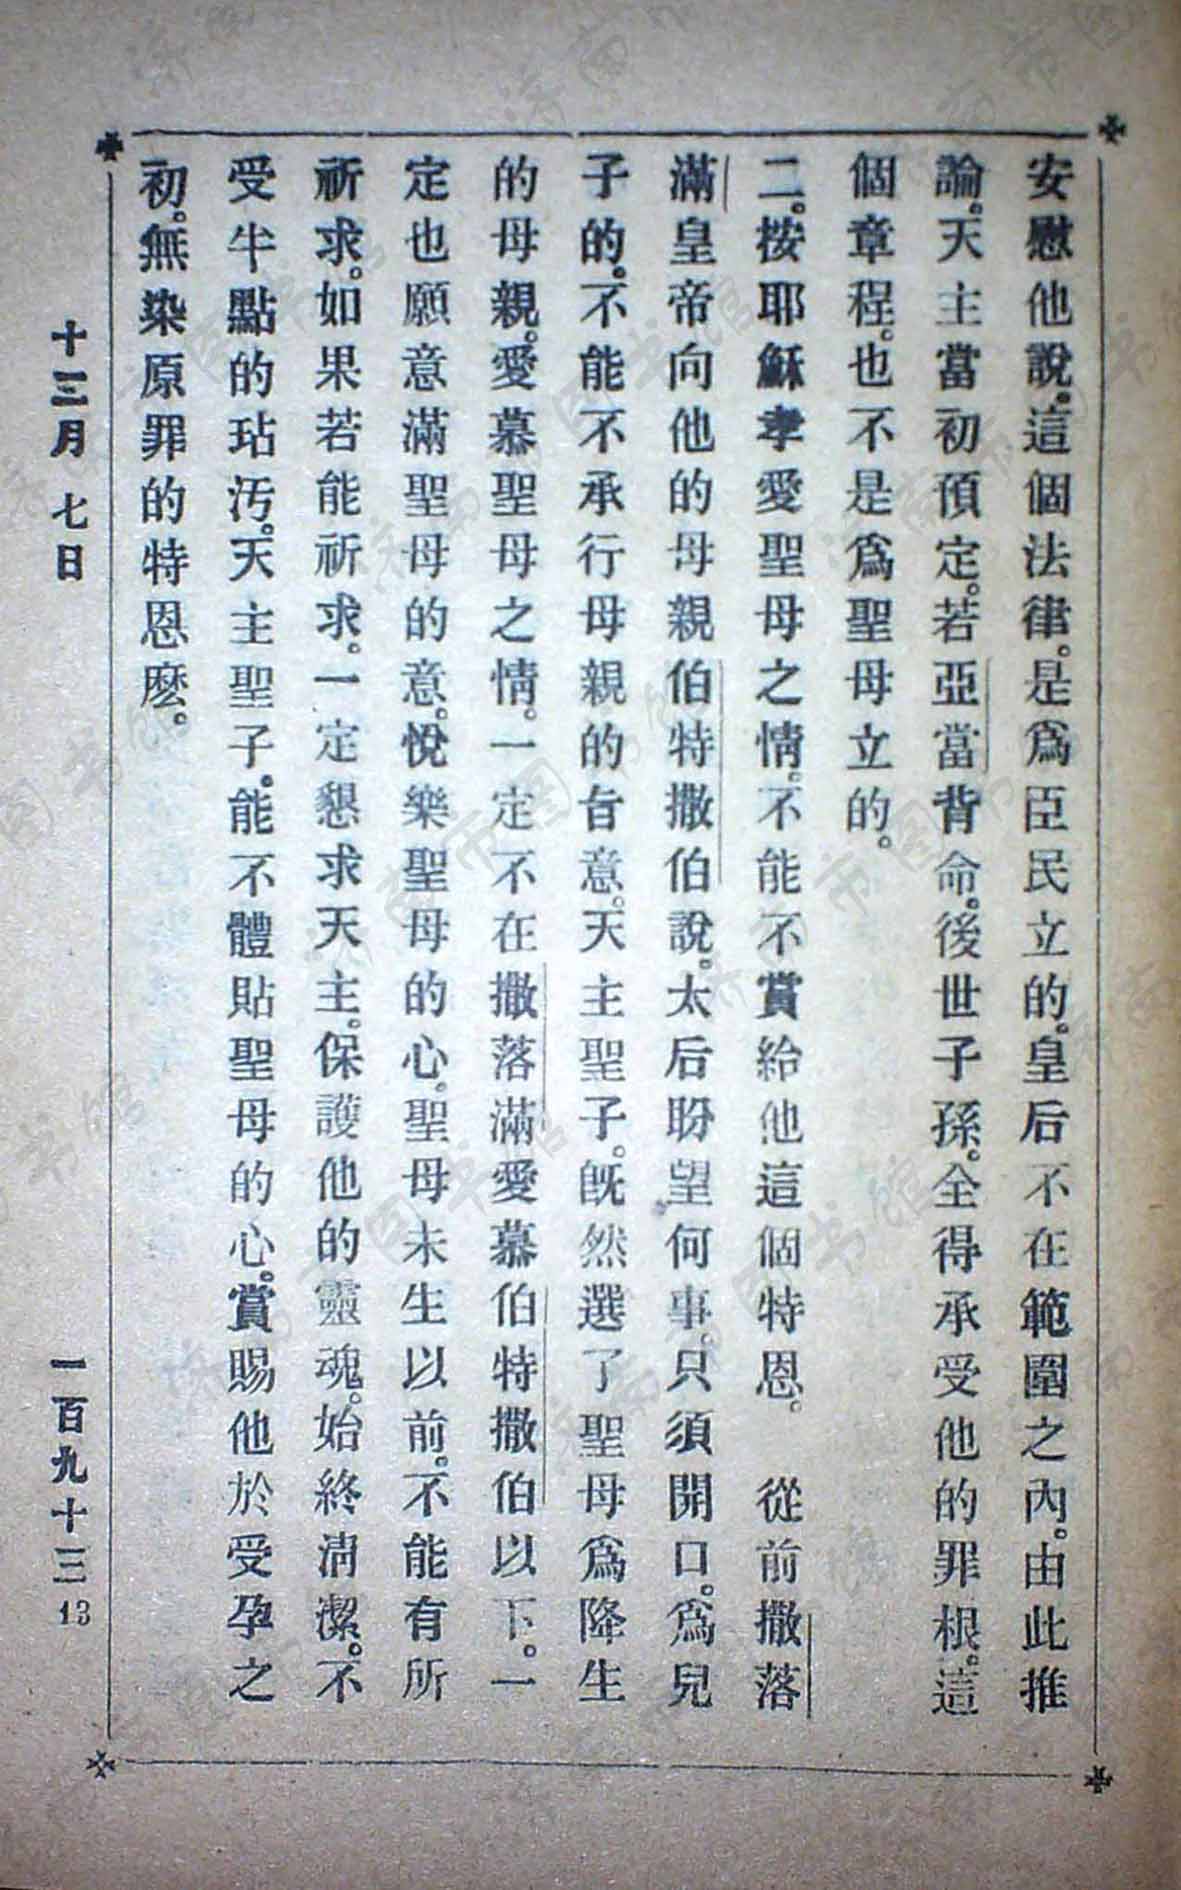 安慰他說。這個法律。是爲臣民立的。皇后不在範圍之內。由此推
論。天主當初預定。若亞當背命。後世子孫。全得承受他的罪根。這
個章程。也不是爲聖母立的。
二。按耶穌孝愛聖母之情。不能不賞給他這個特恩。　從前撒落
滿皇帝向他的母親伯特撒伯說。太后盼望何事。只須開口。爲兒
子的。不能不承行母親的旨意。天主聖子。旣然選了聖母爲降生
的母親。愛慕聖母之情。一定不在撒落滿愛慕伯特撒伯以下。一
定也願意滿聖母的意。悅樂聖母的心。聖母未生以前。不能有所
祈求。如果若能祈求。一定懇求天主。保護他的靈魂。始終淸潔。不
受半點的玷汚。天主聖子。能不體貼聖母的心。賞賜他於受孕之
初。無染原罪的特恩麽。
十二月　七日
一百九十三
13
济南市图书馆